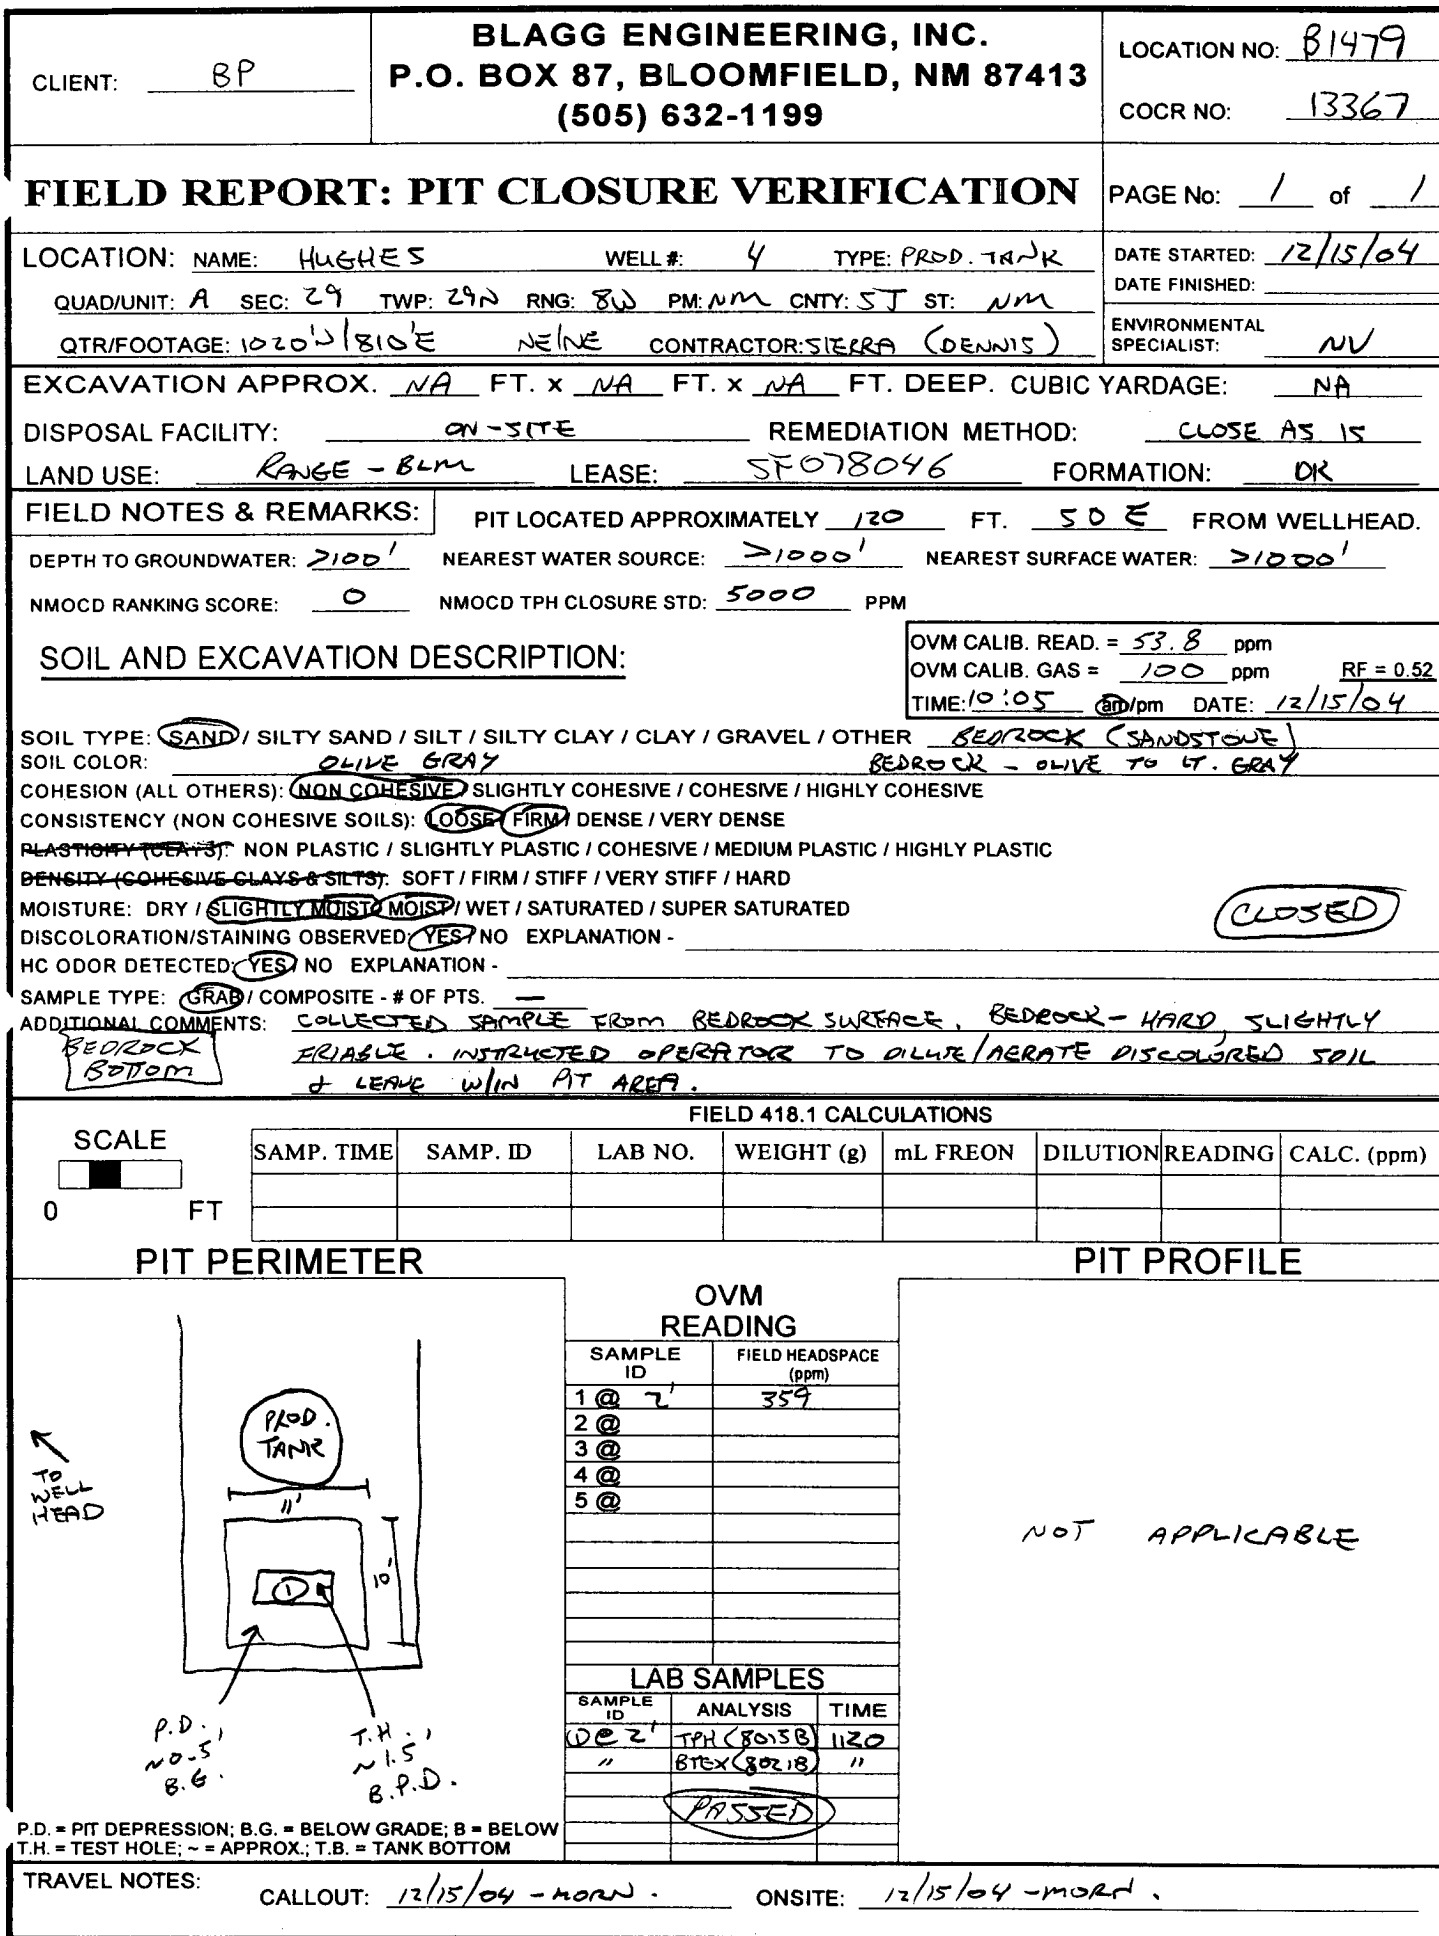 CLIENT: BP
BLAGG ENGINEERING, INC.
P.O. BOX 87, BLOOMFIELD, NM 87413
(505) 632-1199
LOCATION NO: B1479
COCR NO: 13367
FIELD REPORT: PIT CLOSURE VERIFICATION
PAGE No: 1 of 1
LOCATION: NAME: HUGHES WELL #: 4 TYPE: PROD. TANK
QUAD/UNIT: A SEC: 29 TWP: 29N RNG: 8W PM: NM CNTY: SJ ST: NM
QTR/FOOTAGE: 1020'N/810'E NE/NE CONTRACTOR: SIERRA (DENNIS)
DATE STARTED: 12/15/04
DATE FINISHED:
ENVIRONMENTAL
SPECIALIST: NV
EXCAVATION APPROX. NA FT. x NA FT. x NA FT. DEEP. CUBIC YARDAGE: NA
DISPOSAL FACILITY: ON-SITE REMEDIATION METHOD: CLOSE AS IS
LAND USE: RANGE - BLM LEASE: SF078046 FORMATION: DK
FIELD NOTES & REMARKS: PIT LOCATED APPROXIMATELY 120 FT. S0E FROM WELLHEAD.
DEPTH TO GROUNDWATER: >100' NEAREST WATER SOURCE: >1000' NEAREST SURFACE WATER: >1000'
NMOCD RANKING SCORE: 0 NMOCD TPH CLOSURE STD: 5000 PPM
SOIL AND EXCAVATION DESCRIPTION:
OVM CALIB. READ. = 53.8 ppm
OVM CALIB. GAS = 100 ppm RF = 0.52
TIME: 10:05 am/pm DATE: 12/15/04
SOIL TYPE: SAND / SILTY SAND / SILT / SILTY CLAY / CLAY / GRAVEL / OTHER BEDROCK (SANDSTONE)
SOIL COLOR: OLIVE GRAY BEDROCK - OLIVE TO LT. GRAY
COHESION (ALL OTHERS): NON COHESIVE / SLIGHTLY COHESIVE / COHESIVE / HIGHLY COHESIVE
CONSISTENCY (NON COHESIVE SOILS): LOOSE / FIRM / DENSE / VERY DENSE
PLASTICITY (CLAYS): NON PLASTIC / SLIGHTLY PLASTIC / COHESIVE / MEDIUM PLASTIC / HIGHLY PLASTIC
DENSITY (COHESIVE CLAYS & SILTS): SOFT / FIRM / STIFF / VERY STIFF / HARD
MOISTURE: DRY / SLIGHTLY MOIST / MOIST / WET / SATURATED / SUPER SATURATED
CLOSED
DISCOLORATION/STAINING OBSERVED: YES / NO EXPLANATION -
HC ODOR DETECTED: YES / NO EXPLANATION -
SAMPLE TYPE: GRAB / COMPOSITE - # OF PTS. —
ADDITIONAL COMMENTS: COLLECTED SAMPLE FROM BEDROCK SURFACE. BEDROCK - HARD, SLIGHTLY
FRIABLE. INSTRUCTED OPERATOR TO DILUTE/AERATE DISCOLORED SOIL
& LEAVE W/IN PIT AREA.
BEDROCK
BOTTOM
FIELD 418.1 CALCULATIONS
SCALE
0 FT
SAMP. TIME SAMP. ID LAB NO. WEIGHT (g) mL FREON DILUTION READING CALC. (ppm)
PIT PERIMETER
PROD.
TANK
TO
WELL
HEAD
11'
10'
1
P.D.,
~0.5'
B.G.
T.H.,
~1.5'
B.P.D.
P.D. = PIT DEPRESSION; B.G. = BELOW GRADE; B = BELOW
T.H. = TEST HOLE; ~ = APPROX.; T.B. = TANK BOTTOM
OVM
READING
SAMPLE ID FIELD HEADSPACE (ppm)
1 @ 2' 359
2 @
3 @
4 @
5 @
LAB SAMPLES
SAMPLE ID ANALYSIS TIME
1 @ 2' TPH (8015B) 1120
" BTEX (8021B) "
PASSED
PIT PROFILE
NOT APPLICABLE
TRAVEL NOTES: CALLOUT: 12/15/04 - MORN. ONSITE: 12/15/04 - MORN.